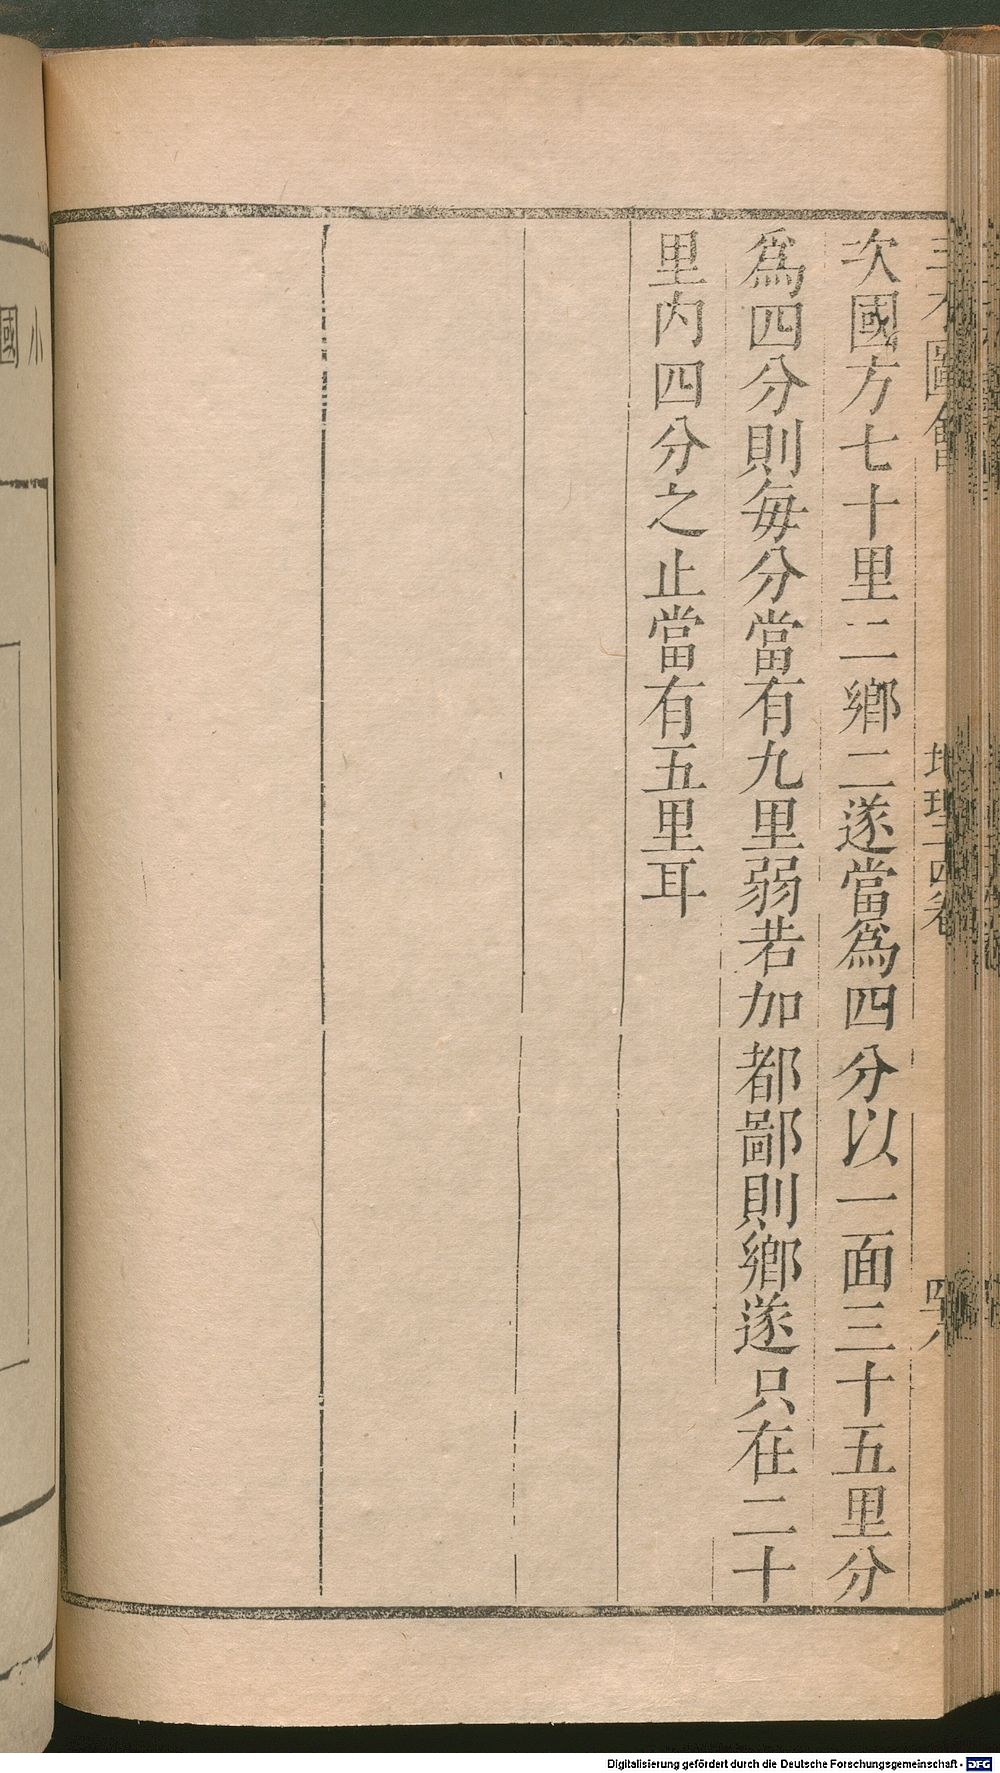 三才圖會 地理十四卷 四八
次國方七十里二鄉二遂當爲四分以一面三十五里分
爲四分則每分當有九里弱若加都鄙則鄉遂只在二十
里内四分之止當有五里耳
小
國
Digitalisierung gefördert durch die Deutsche Forschungsgemeinschaft - DFG